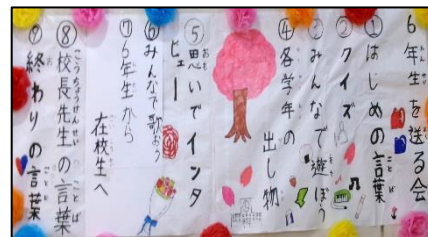 6年生を送る会
①はじめの言葉
②クイズ
③みんなで遊ぼう
④各学年の
出し物
⑤思いでインタ
ビュー
⑥みんなで歌おう
⑦6年生から
在校生へ
⑧校長先生の言葉
⑨終わりの言葉